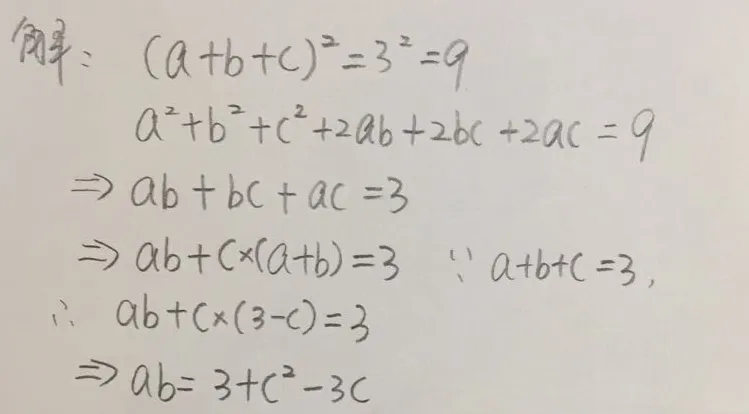 解: (a+b+c)²=3²=9
a²+b²+c²+2ab+2bc+2ac=9
⇒ ab+bc+ac=3
⇒ ab+c×(a+b)=3 ∵ a+b+c=3,
∴ ab+c×(3-c)=3
⇒ ab=3+c²-3c